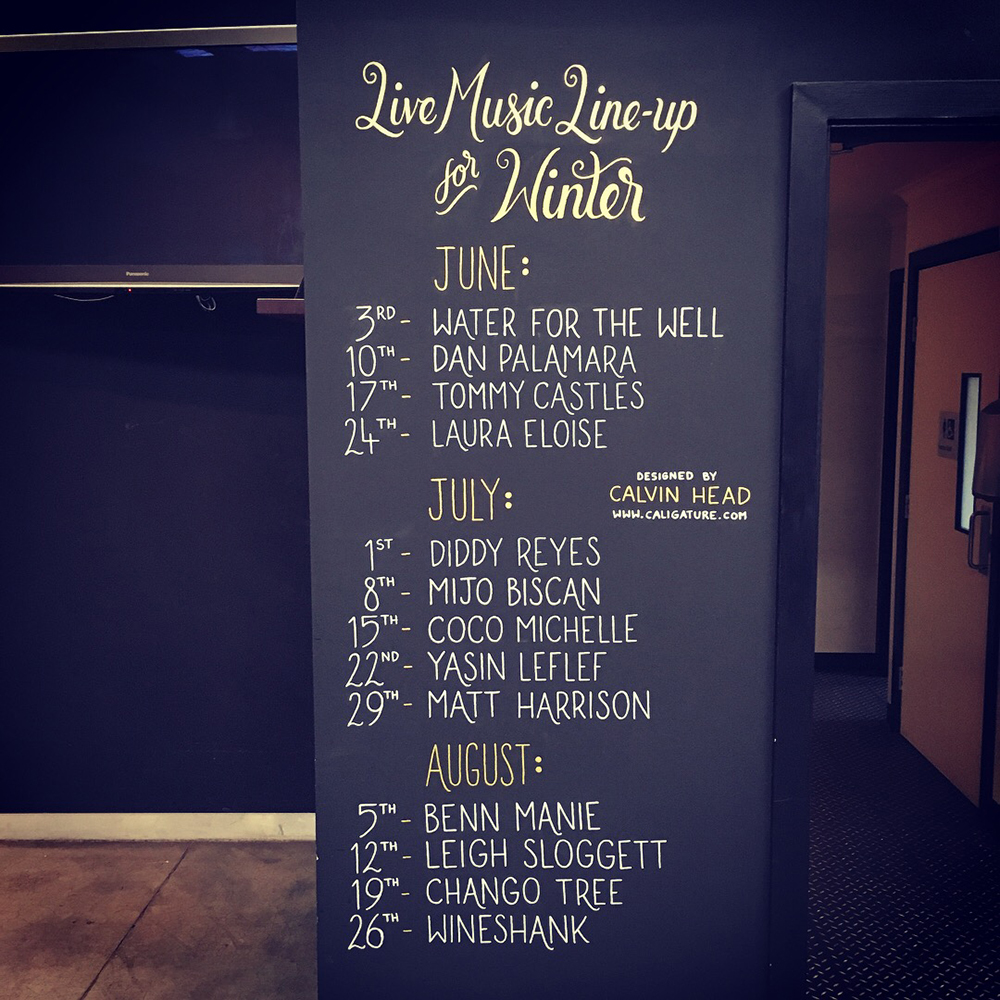 Panasonic
Live Music Line-up
for Winter
JUNE:
3RD - WATER FOR THE WELL
10TH - DAN PALAMARA
17TH - TOMMY CASTLES
24TH - LAURA ELOISE
JULY:
DESIGNED BY
CALVIN HEAD
WWW.CALIGATURE.COM
1ST - DIDDY REYES
8TH - MIJO BISCAN
15TH - COCO MICHELLE
22ND - YASIN LEFLEF
29TH - MATT HARRISON
AUGUST:
5TH - BENN MANIE
12TH - LEIGH SLOGGETT
19TH - CHANGO TREE
26TH - WINESHANK